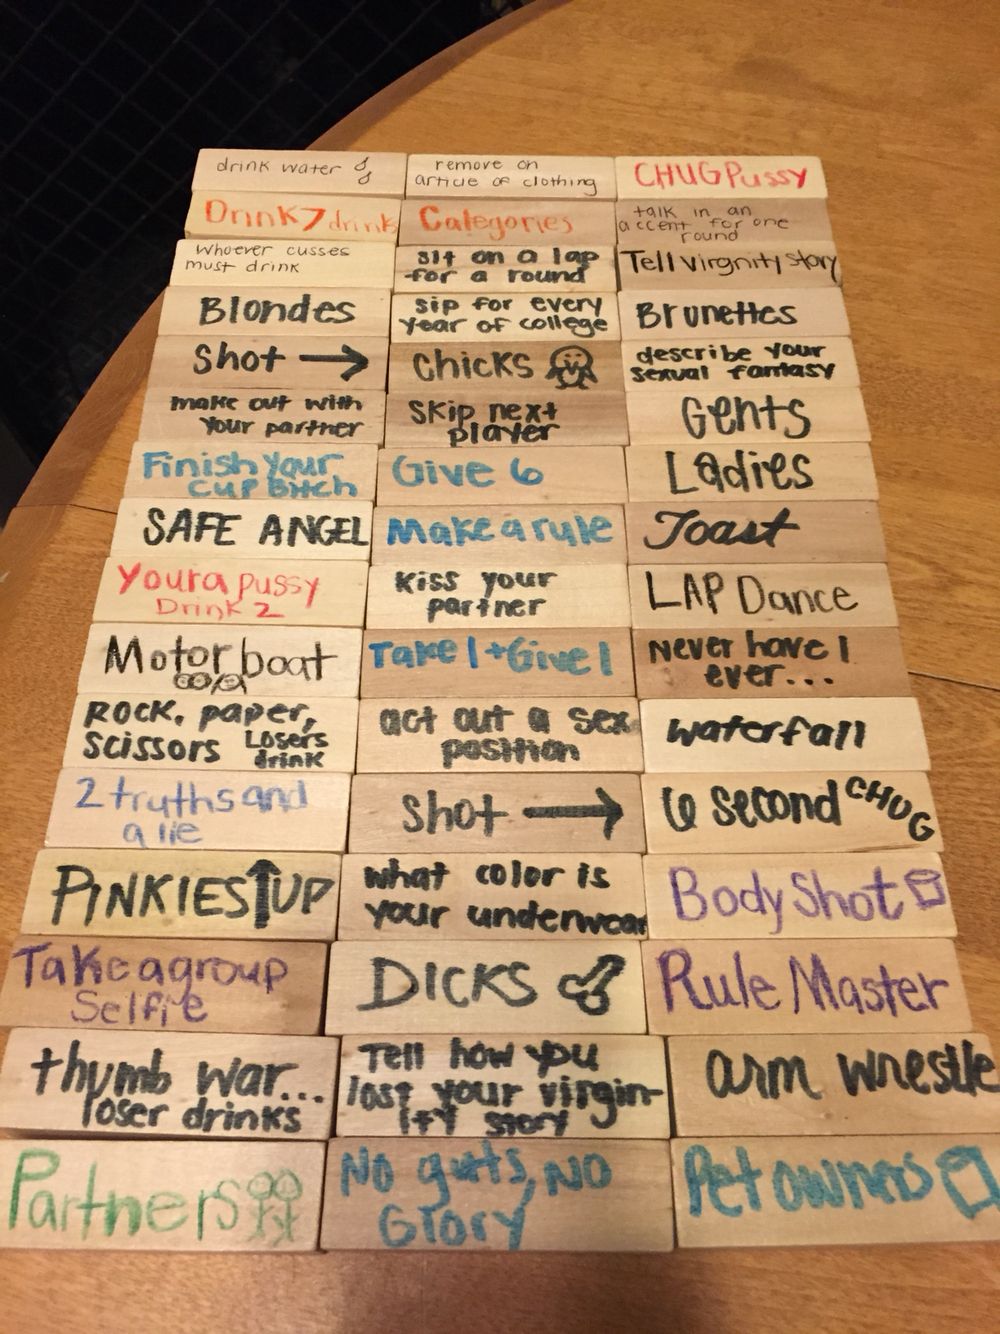 drink water
remove on
article of clothing
CHUG Pussy
Drink 7 drinks
Categories
talk in an
accent for one
round
whoever cusses
must drink
sit on a lap
for a round
Tell virgnity story
Blondes
sip for every
year of college
Brunettes
Shot →
Chicks
describe your
sexual fantasy
make out with
your partner
Skip next
player
Gents
Finish your
cup Bitch
Give 6
Ladies
SAFE ANGEL
Make a rule
Toast
Your a pussy
Drink 2
Kiss your
partner
LAP Dance
Motor boat
Take 1 + Give 1
Never have I
ever...
ROCK, paper,
Scissors Losers
drink
act out a sex
position
waterfall
2 truths and
a lie
Shot →
6 second CHUG
PINKIES ↑ UP
what color is
your underwear
Body Shot
Take a group
Selfie
DICKS
Rule Master
thumb war...
loser drinks
Tell how you
lost your virgin-
ity story
arm wrestle
Partners
No guts, NO
Glory
Pet owners